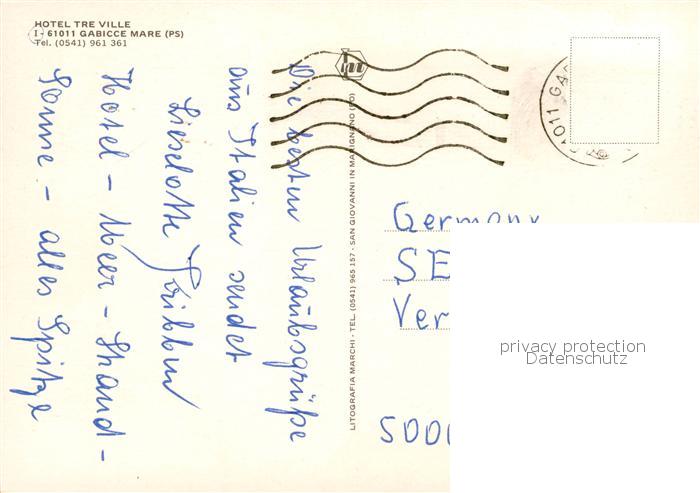 HOTEL TRE VILLE
I - 61011 GABICCE MARE (PS)
Tel. (0541) 961 361
Die besten Urlaubsgrüße
aus Italien sendet
Lieselotte
Hotel - Meer - Strand -
Sonne - alles Spitze
LITOGRAFIA MARCHI - TEL. (0541) 965 157 - SAN GIOVANNI IN MARIGNANO (FO)
Germany
SE
Ver
5000
privacy protection
Datenschutz